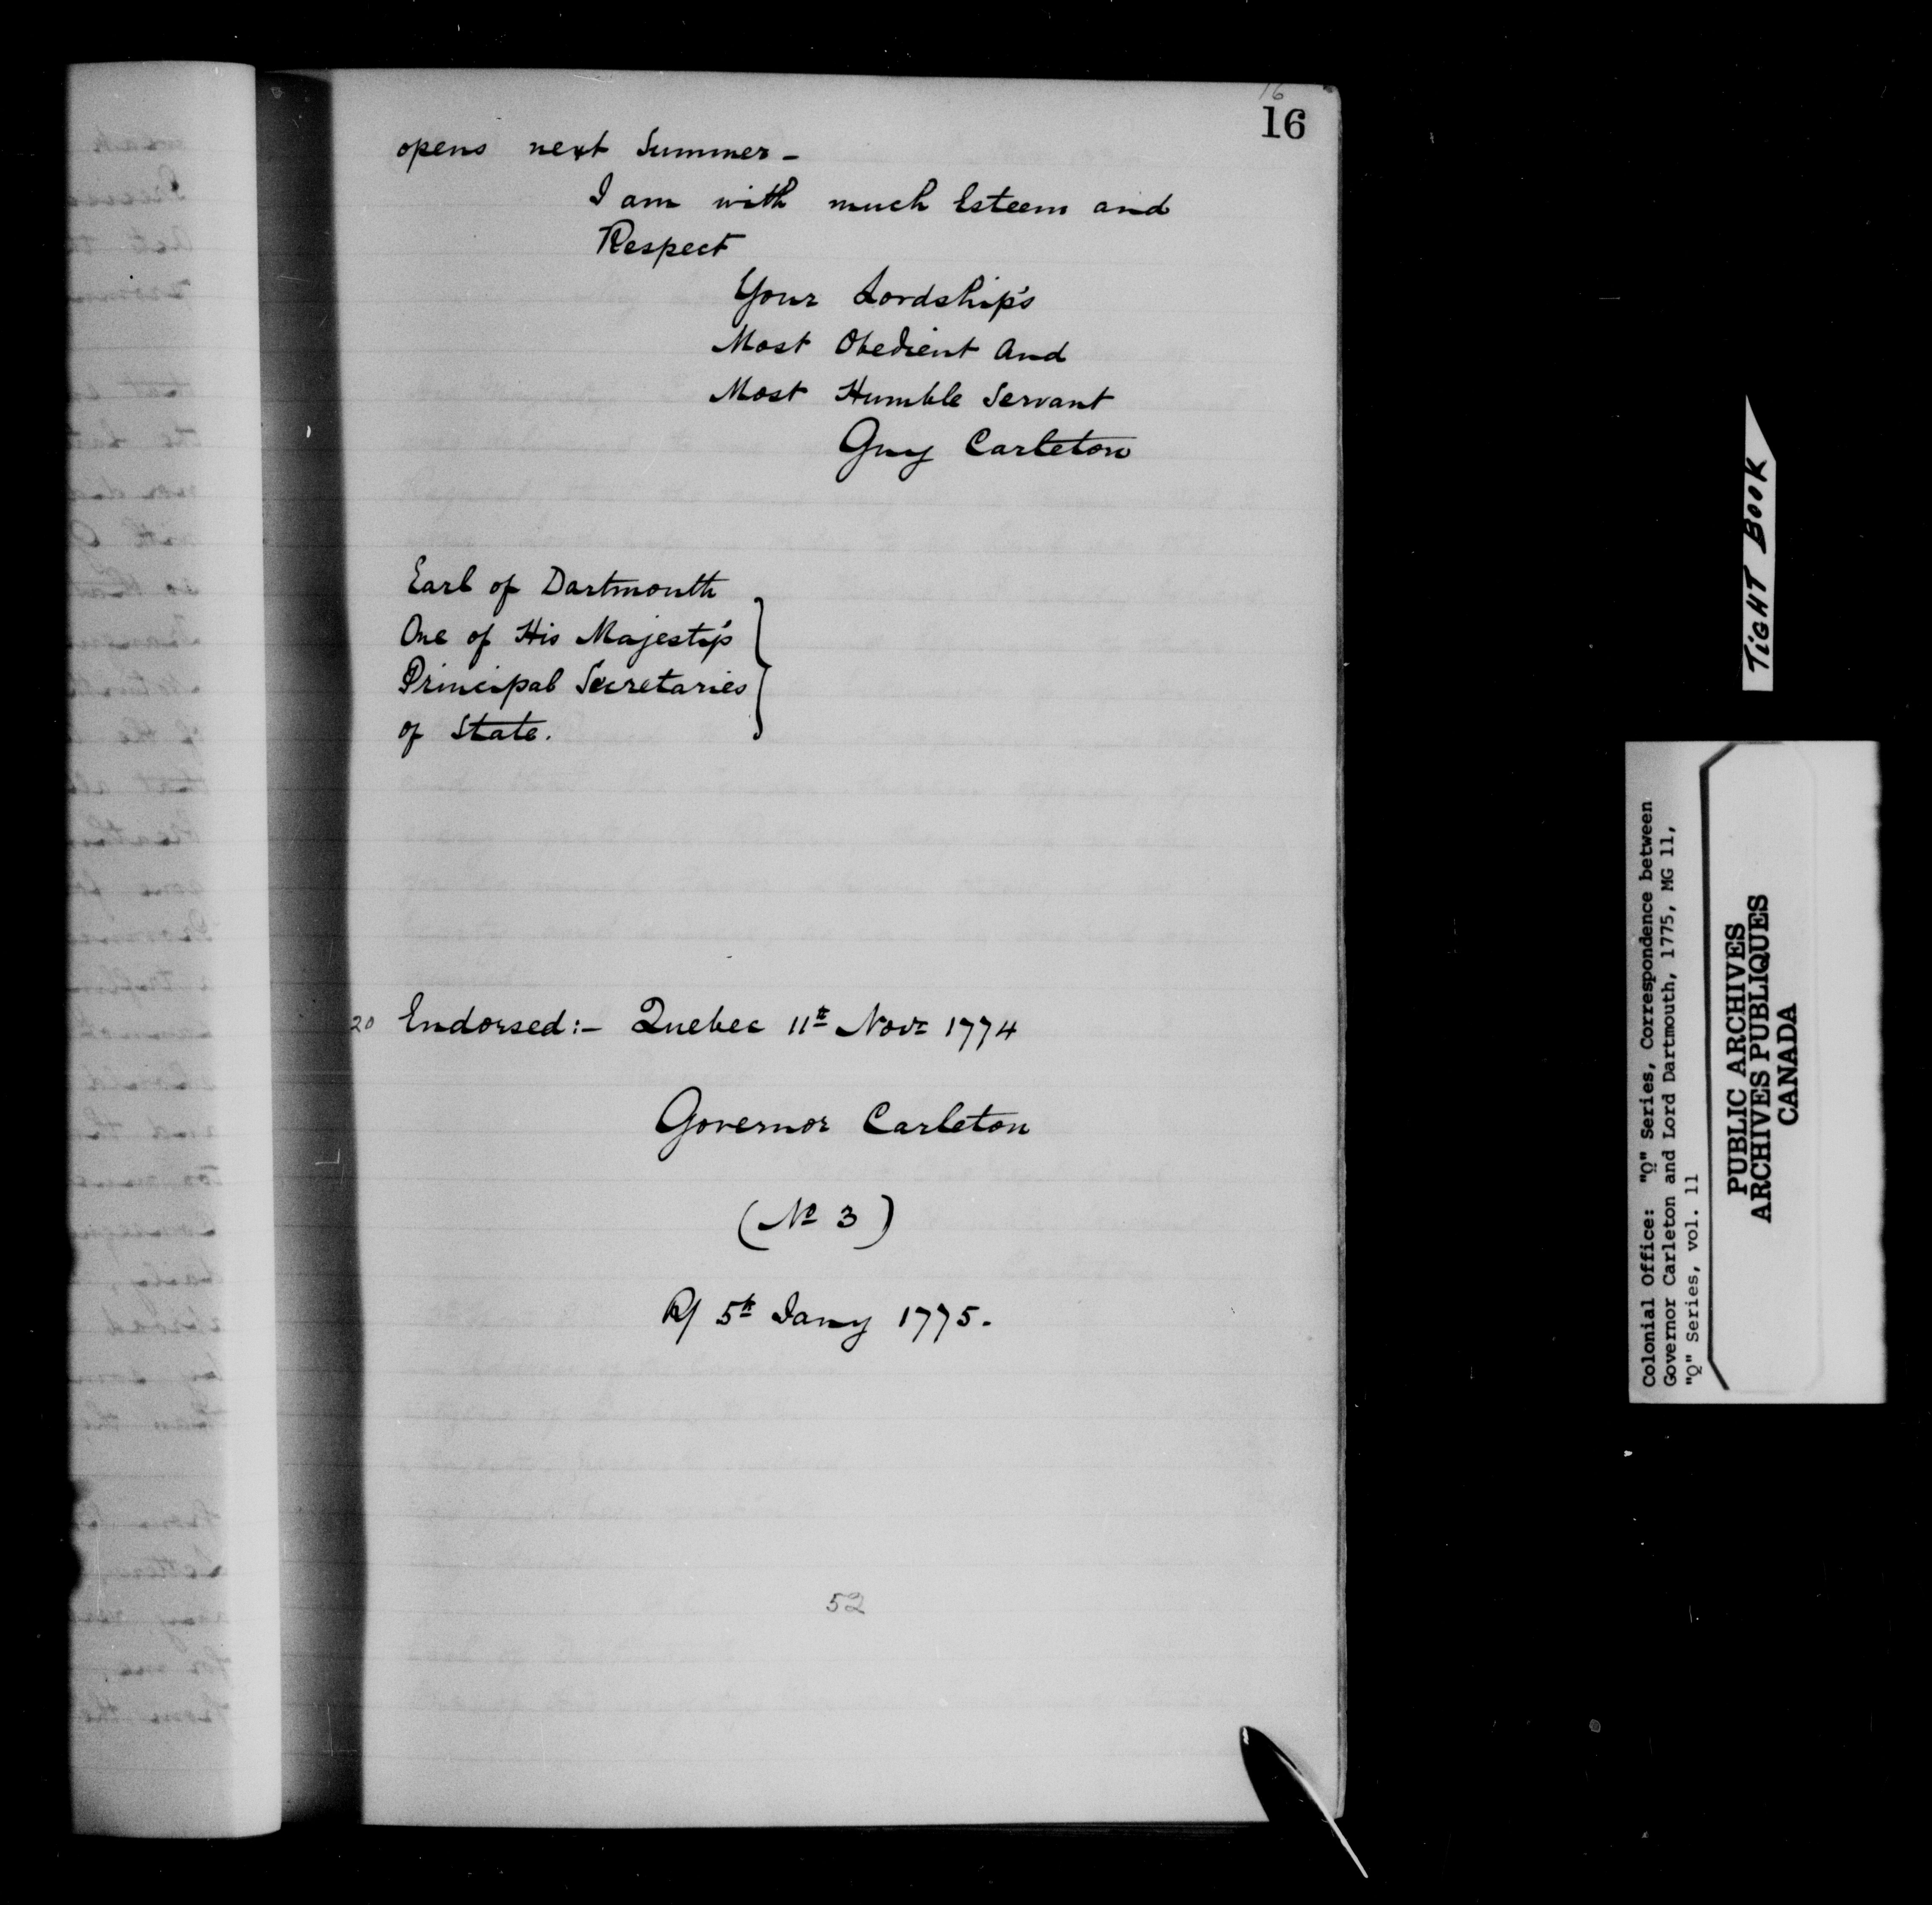 16
16
opens next Summer -
I am with much Esteem and
Respect
Your Lordship's
Most Obedient And
Most Humble Servant
Guy Carleton
Earl of Dartmouth
One of His Majesty's
Principal Secretaries
of State.
20 Endorsed:- Quebec 11th Novr 1774
Governor Carleton
(No 3)
R/ 5th Jany 1775.
52
TIGHT BOOK
Colonial Office: "Q" Series, Correspondence between
Governor Carleton and Lord Dartmouth, 1775, MG 11,
"Q" Series, vol. 11
PUBLIC ARCHIVES
ARCHIVES PUBLIQUES
CANADA